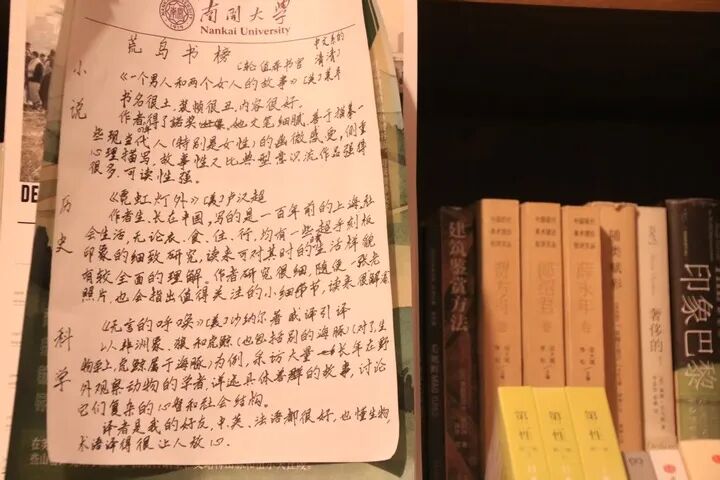 南開大學
Nankai University
荒岛书榜
中文系的
轮值荐书官 清清
小说
《一个男人和两个女人的故事》[英]莱辛
书名很土,装帧很丑,内容很好。
作者得了诺奖 她文笔细腻,善于描摹一
些现当代人(特别是女性)的幽微感受,侧重
心理描写,故事性又比典型意识流作品强得
很多,可读性强。
历史
《霓虹灯外》[美]卢汉超
作者生、长在中国,写的是一百年前的上海社
会生活,无论衣、食、住、行,均有一些超乎刻板
印象的细致研究,读来可对其时的生活样貌
有较全面的理解。作者研究很细,随便一张老
照片,也会指出值得关注的小细节,读来很解渴
科学
《无言的呼唤》[美]沙纳尔著 戚译引译
以非洲象、狼和虎鲸(也包括别的海豚)(对了,生
物学上,虎鲸属于海豚)为例,采访大量长年在野
外观察动物的学者,详述具体着鲜的故事,讨论
它们复杂的心智和社会结构。
译者是我的好友,中、英、法语都很好,也懂生物,
术语译得很让人放心。
建筑鉴赏方法
随类赋彩
奢侈的
印象巴黎
第二性
第二性
第二性